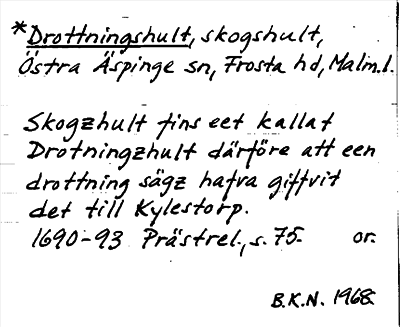 *Drottningshult, skogshult,
Östra Äspinge sn, Frosta hd, Malm.l.
Skogzhult fins eet kallat
Drotningzhult därföre att een
drottning sägz hafva giffvit
det till Kylestorp.
1690-93 Prästrel., s. 75. or.
B.K.N. 1968.